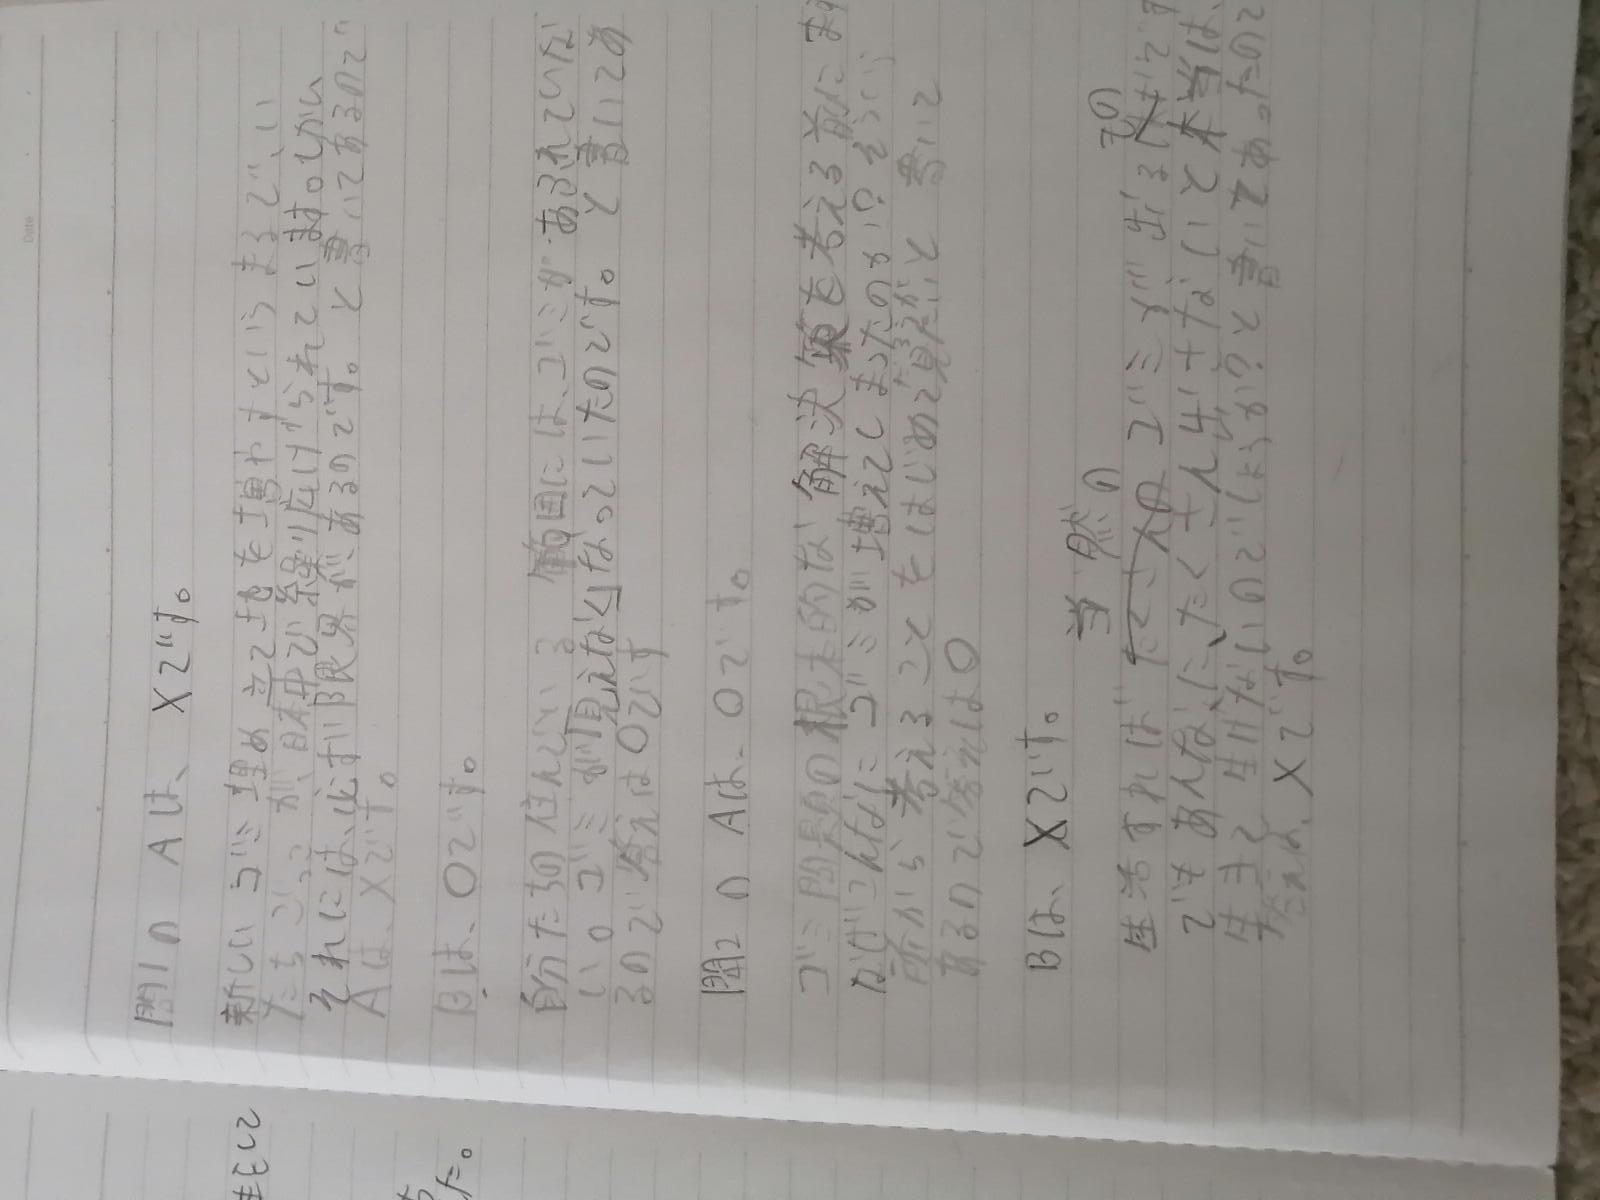 Date
問1の Aは、×です。
新しいゴミ埋め立て地を増やすという まるで、い
たちごっこが、日本中で繰り広げられています。しかし
それには、必ず限界があるのです。と書いてあるので
Aは、×です。
Bは、○です。
自分たちの住んでいる 範囲には、ゴミが あふれていな
い。ゴミが「見えなく」なっていたのです。と書いてあ
るので答えは○です
問2の Aは、○です。
ゴミ問題の根本的な解決策を考える前に
なぜこんなにゴミが増えてしまったのか?そういう
所から考えることをはじめて見だいと 書いて
あるので答えは○
Bは、×です。
当然の
その
生活すれば たくさんの ゴミが出る
でもあんなにたくさん出さないと本当は
生きて生けないのでしょうか?と書いてあったので
答えは、×です。
た。